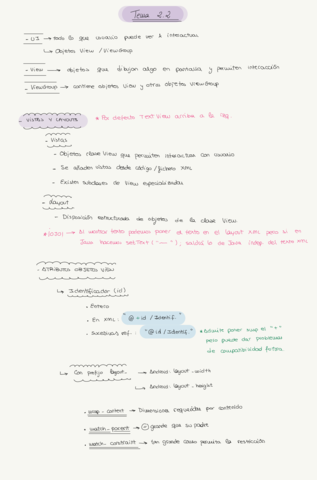 Tema 2.2
- UI → todo lo que usuario puede ver & interactuar
↳ Objetos View / ViewGroup
- View → objetos que dibujan algo en pantalla y permiten interacción
- ViewGroup → contiene objetos View y otros objetos ViewGroup
- VISTAS Y LAYOUTS * Por defecto TextView arriba a la izq.
- Vistas
- Objetos clase View que permiten interactuar con usuario
- Se añaden vistas desde código / fichero XML
- Existen subclases de View especializadas
- Layout
- Disposición estructurada de objetos de la clase View
* ¡OJO! → Si escribo texto podemos poner el texto en el layout XML pero si en
Java hacemos setText ("—"), saldrá lo de Java indep. del texto XML
- ATRIBUTOS OBJETOS VIEW
↳ Identificador (id)
- Entero
- En XML: "@+id/Identif."
- Sucesivas ref.: "@id/Identif."
* Admite poner aquí el "+"
pero puede dar problemas
de compatibilidad futura
↳ Con prefijo layout_ → android:layout_width
↳ android:layout_height
- wrap_content → Dimensiones requeridas por contenido
- match_parent → = grande que su padre
- match_constraint → tan grande como permita la restricción